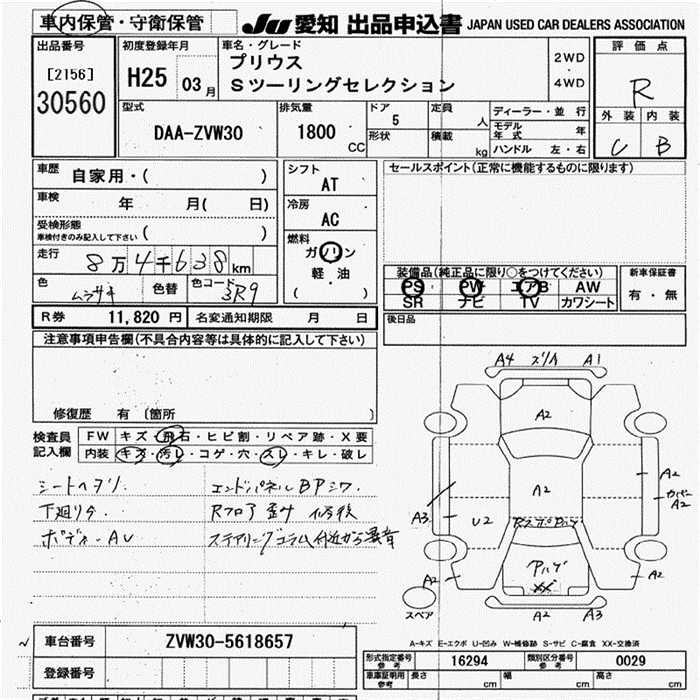 車内保管・守衛保管
JU 愛知 出品申込書 JAPAN USED CAR DEALERS ASSOCIATION
出品番号
[2156]
30560
初度登録年月
H25 03月
車名・グレード
プリウス
Sツーリングセレクション
2WD
・
4WD
評価点
R
外装 内装
C B
型式
DAA-ZVW30
排気量
1800
CC
ドア
5
形状
定員
人
積載
kg
ディーラー・並行
モデル年式 年
ハンドル 左・右
車歴
自家用・( )
車検
年 月( 日)
受検形態
車検付きのみ記入して下さい ( )
走行
8万4千638km
色
ムラサキ
色替
色コード
3R9
シフト
AT
冷房
AC
燃料
ガソリン
軽・油
( )
セールスポイント(正常に機能するものに限ります)
装備品(純正品に限り○をつけてください)
PS PW エアB AW
SR ナビ TV カワシート
新車保証書
有・無
後日品
R券 11,820 円 名変通知期限 月 日
注意事項申告欄(不具合内容等は具体的に記入して下さい)
修復歴 有 〔箇所 〕
検査員
記入欄
FW キズ・飛石・ヒビ割・リペア跡・X要
内装 キズ・汚レ・コゲ・穴・スレ・キレ・破レ
シートヘタリ
下廻りサ
ボディーAU
エンドパネルBPシワ
Rフロア歪み 修復
ステアリングコラム付近から異音
A4 ズリA A1
A2
A2
A2
カバー
A2
A3
U2
A2
A2
A2
A2 A3
XX
スペア
A-キズ E-エクボ U-凹み W-補修跡 S-サビ C-腐食 XX-交換済
車台番号
ZVW30-5618657
登録番号
型式指定番号
参考
16294
類別区分番号
参考
0029
車庫証明用
参考
長さ cm
幅 cm
高さ cm